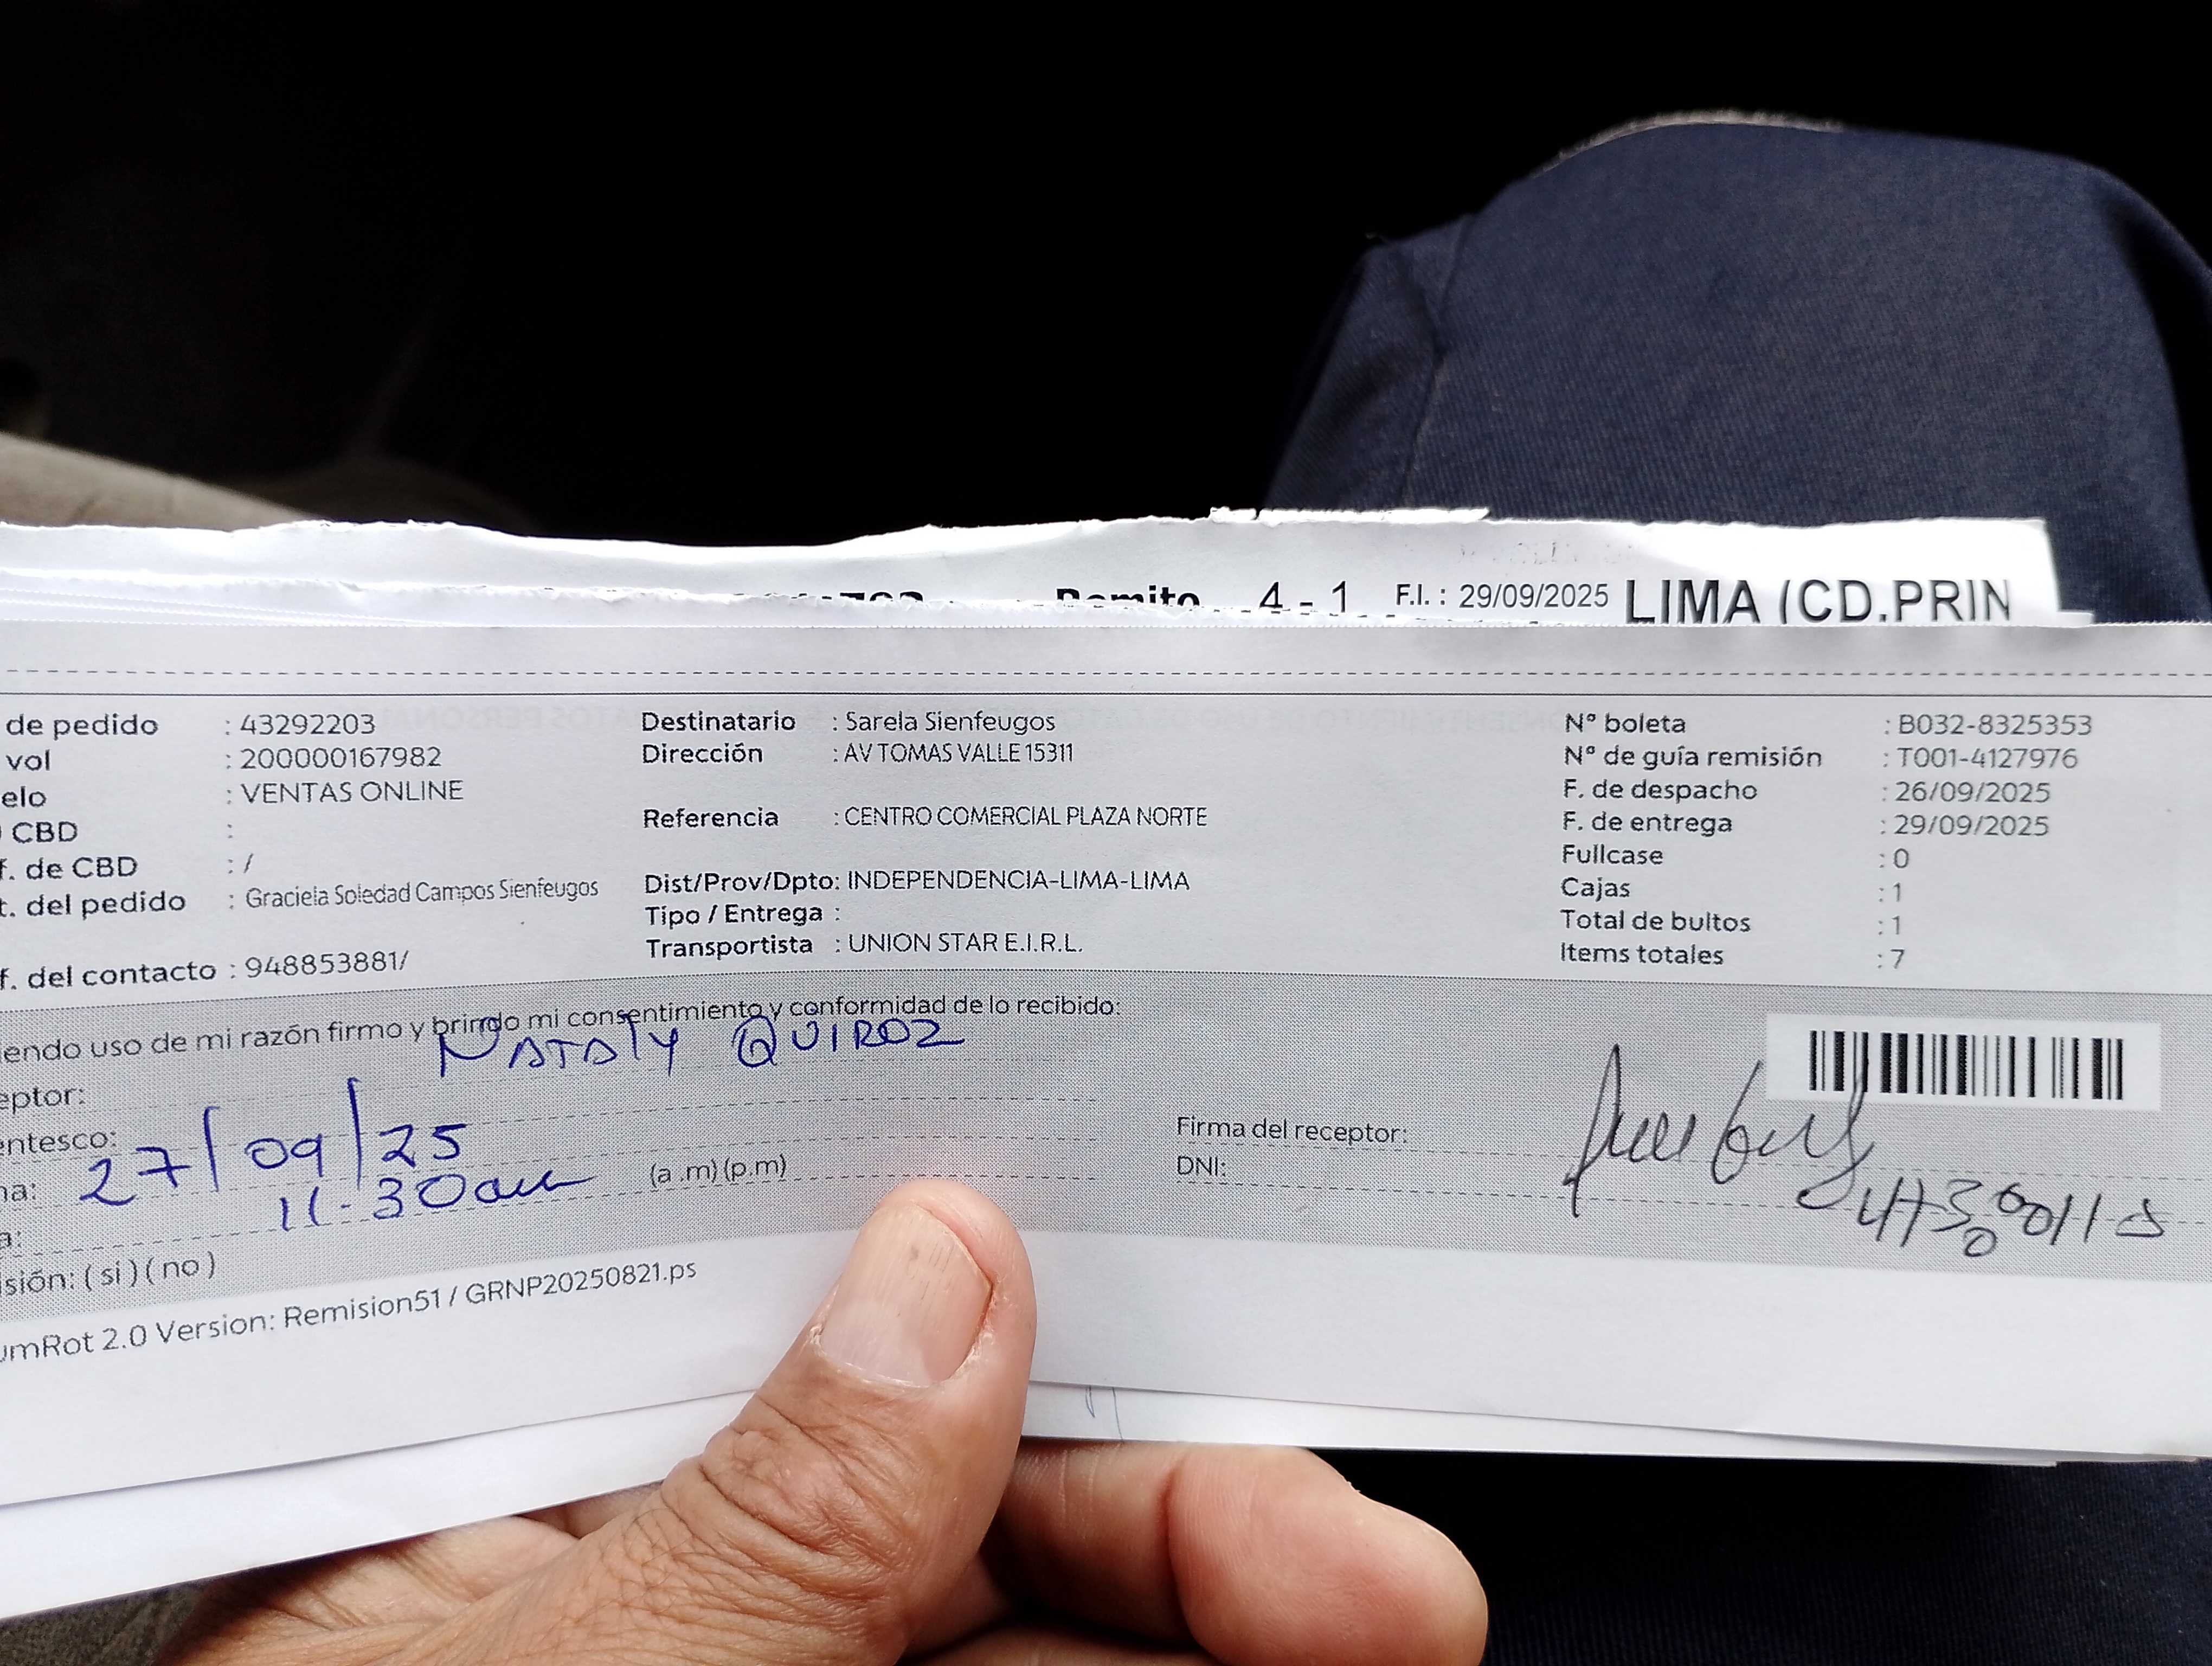 Remito 4 - 1 F.I. : 29/09/2025 LIMA (CD.PRIN
de pedido : 43292203
vol : 200000167982
elo : VENTAS ONLINE
CBD :
f. de CBD : /
t. del pedido : Graciela Soledad Campos Sienfeugos
f. del contacto : 948853881/
Destinatario : Sarela Sienfeugos
Dirección : AV TOMAS VALLE 15311
Referencia : CENTRO COMERCIAL PLAZA NORTE
Dist/Prov/Dpto: INDEPENDENCIA-LIMA-LIMA
Tipo / Entrega :
Transportista : UNION STAR E.I.R.L.
Nº boleta : B032-8325353
Nº de guía remisión : T001-4127976
F. de despacho : 26/09/2025
F. de entrega : 29/09/2025
Fullcase : 0
Cajas : 1
Total de bultos : 1
Items totales : 7
iendo uso de mi razón firmo y brindo mi consentimiento y conformidad de lo recibido:
eptor: NATALY QUIROZ
entesco:
na: 27/09/25
a: 11.30am (a .m) (p.m)
isión: ( si ) ( no )
Firma del receptor:
DNI:
umRot 2.0 Version: Remision51 / GRNP20250821.ps